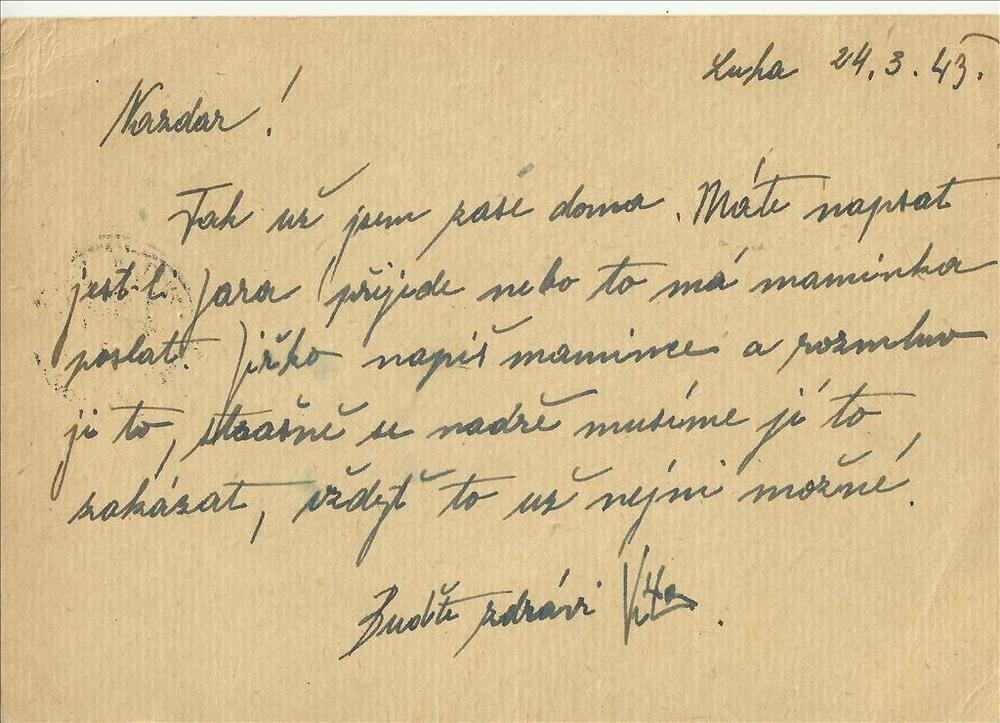 Luha 24. 3. 43.
Nazdar!
Tak už jsem zase doma. Máte napsat
jest-li Jara přijede nebo to má maminka
poslat. Jirko napiš mamince a rozmluv
ji to, strašně se nadře musíme jí to
zakázat, vždyť to už nejni možné.
Buďte zdrávi Víťa.